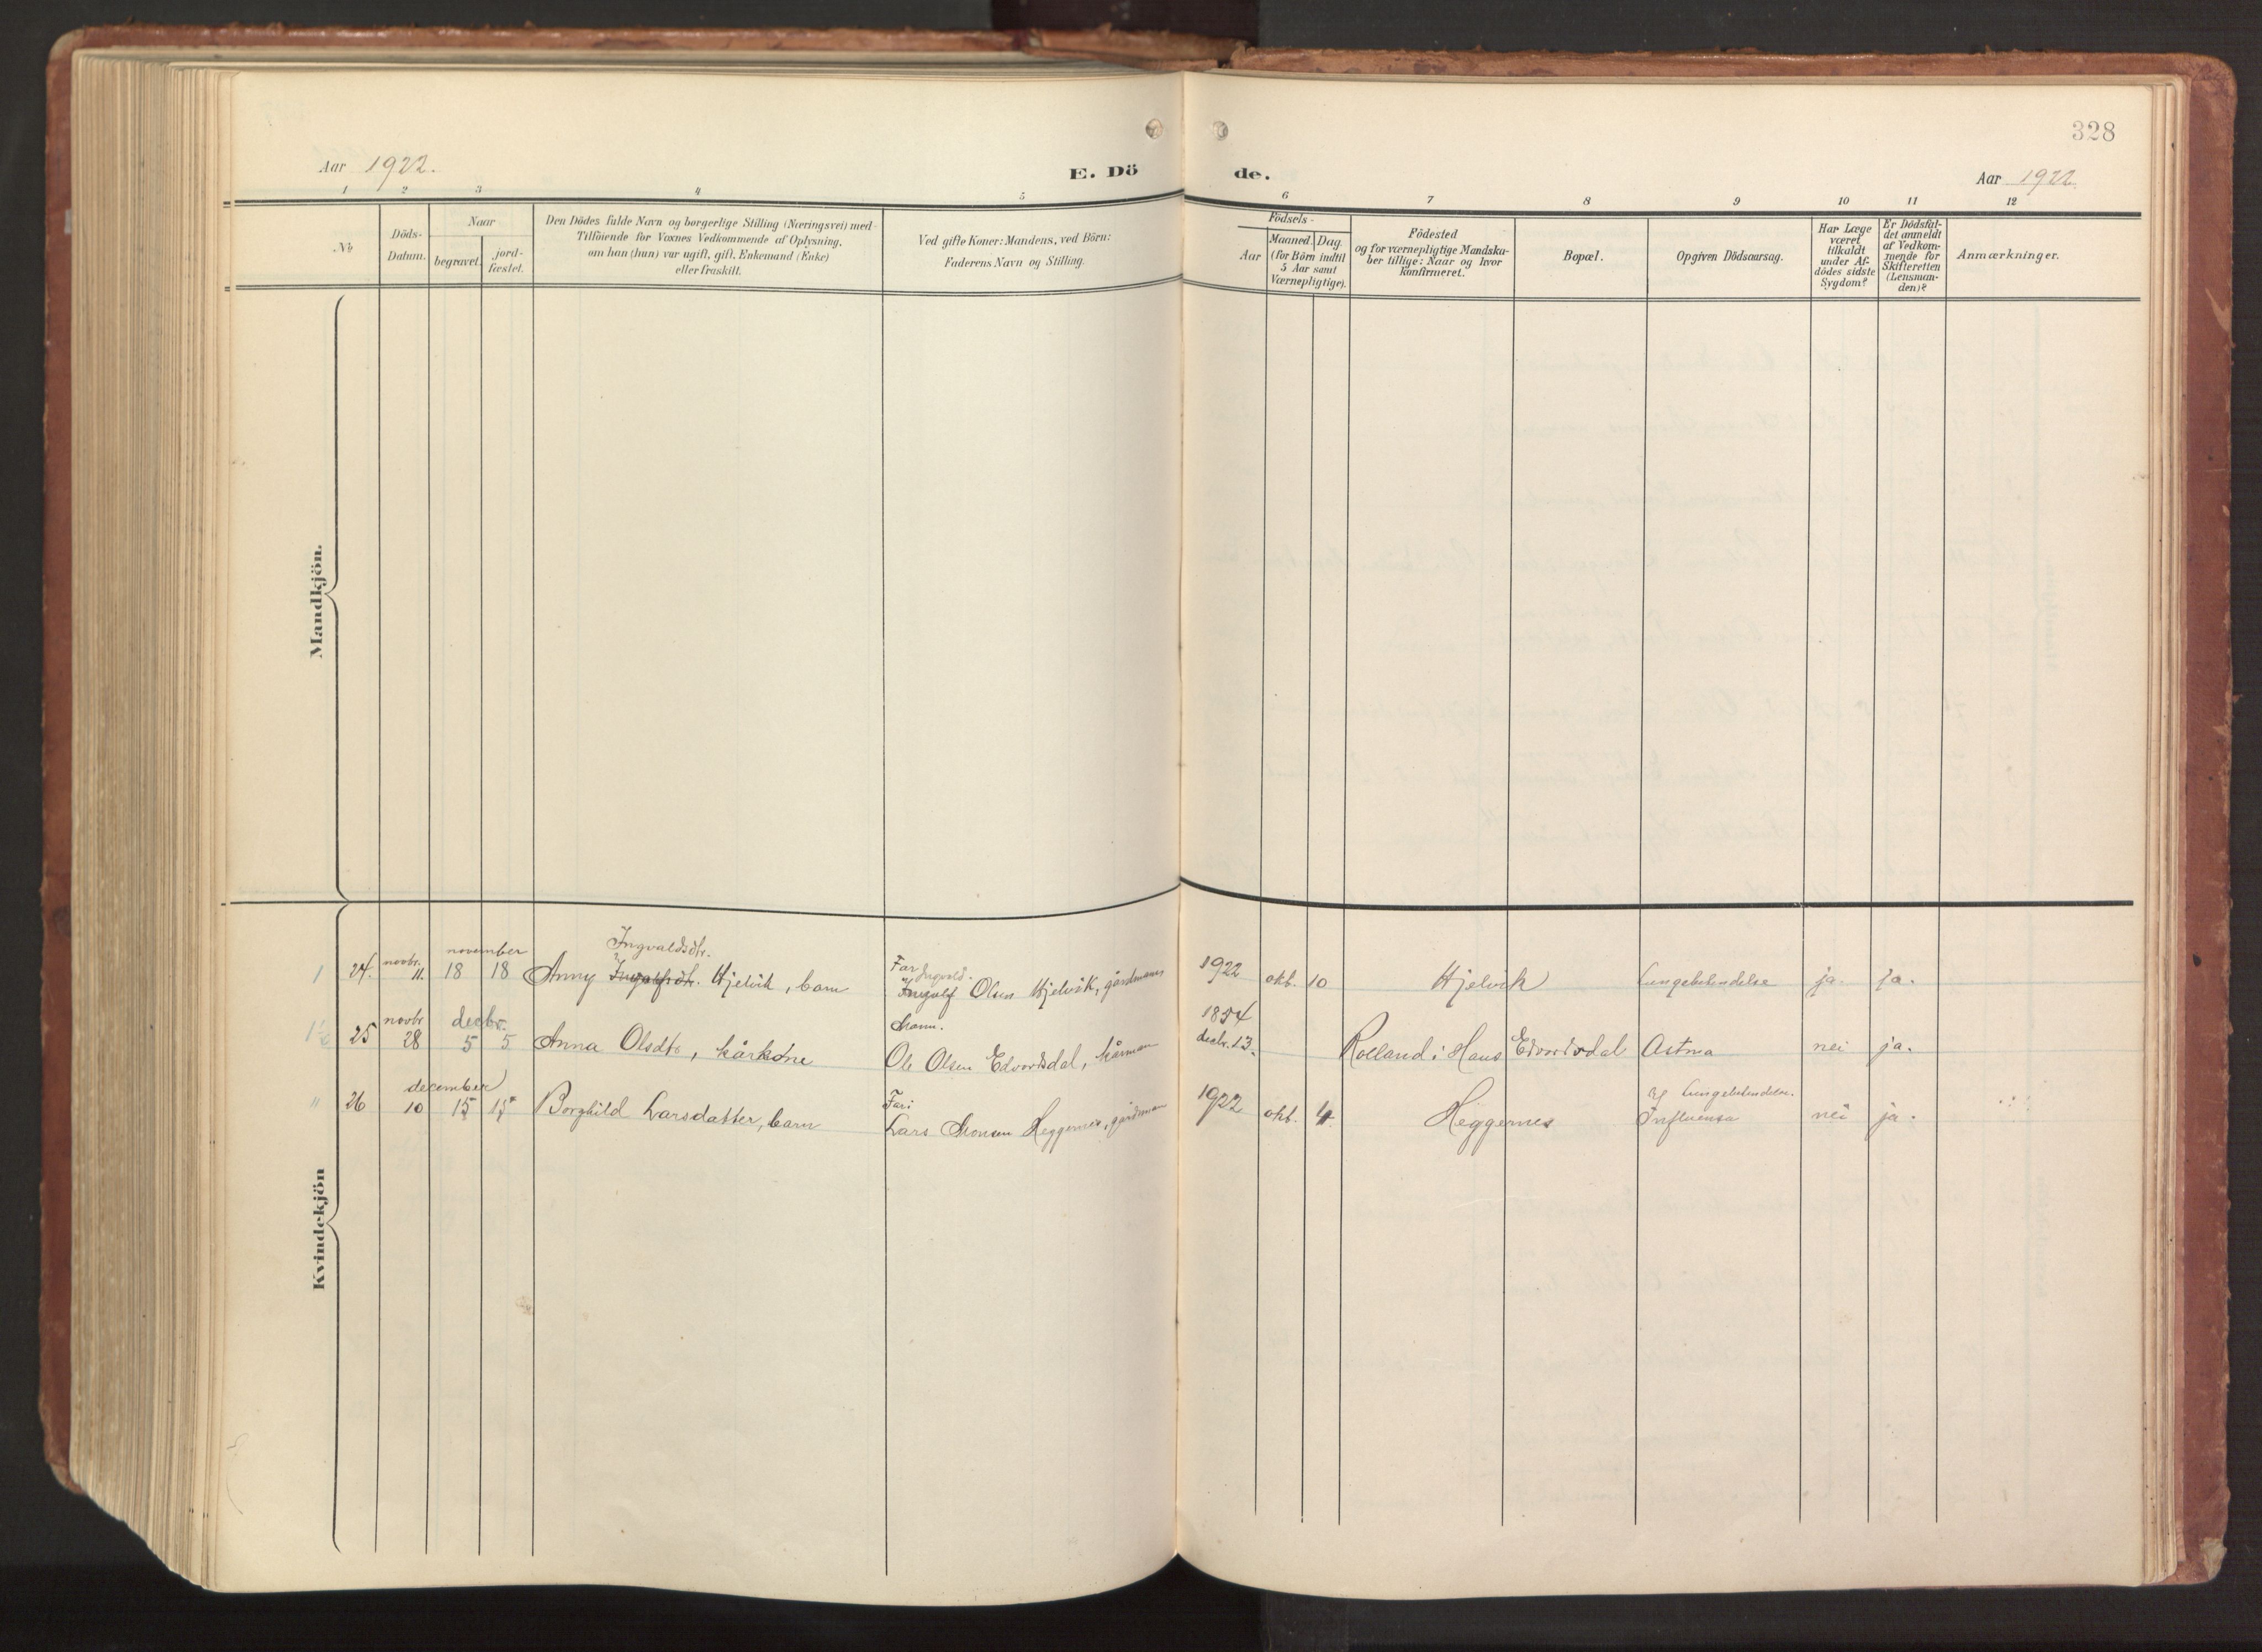 328
Aar 1922.
E. Dö de.
Aar 1922
1 2 3 4 5 6 7 8 9 10 11 12
No
Döds-
Datum.
Naar
begravet.
jord-
fæstet.
Den Dödes fulde Navn og borgerlige Stilling (Næringsvei) med
Tilföiende for Voxnes Vedkommende af Oplysning,
om han (hun) var ugift, gift, Enkemand (Enke)
eller fraskilt.
Ved gifte Koner: Mandens, ved Börn:
Faderens Navn og Stilling.
Födsels-
Aar
Maaned. Dag.
(for Börn indtil
5 Aar samt
Værnepligtige).
Födested
og for værnepligtige Mandska-
ber tillige: Naar og hvor
konfirmeret.
Bopæl.
Opgiven Dödsaarsag.
Har Læge
været
tilkaldt
under Af-
dödes sidste
Sygdom?
Er Dödsfal-
det anmeldt
af Vedkom-
mende for
Skifteretten
(Lensman-
den)?
Anmærkninger.
Mandkjön.
Kvindekjön
novbr. november Ingvaldsdtr. Far Ingvald. 1922
1 24. 11. 18 18 Anny Ingolfsdtr. Hjelvik, barn Ingolf Olsen Hjelvik, gårdmanns okt. 10 Hjelvik Lungebetendelse ja. ja.
novbr decbr. Mann. 1854
1½ 25 28 5 5 Anna Olsdtr, kårkone Ole Olsen Edvordsdal, kårman decbr. 13. Rolland i Haus Edvordsdal Astma nei ja.
december Far: 1922 og Lungebetendelse.
" 26 10 15 15 Borghild Larsdatter, barn Lars Monsen Heggernes, gårdman okt. 4. Heggernes Influensa nei ja.